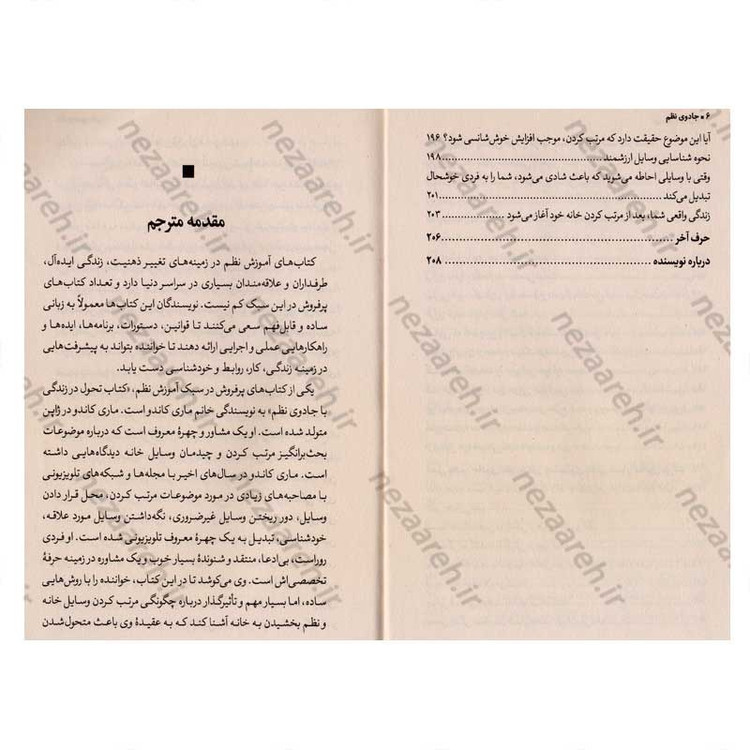 ۶ ▪ جادوی نظم
آیا این موضوع حقیقت دارد که مرتب کردن، موجب افزایش خوش‌شانسی شود؟ ۱۹۶
نحوه شناسایی وسایل ارزشمند ................ ۱۹۸
وقتی با وسایلی احاطه می‌شوید که باعث شادی می‌شود، شما را به فردی خوشحال
تبدیل می‌کند ................ ۲۰۱
زندگی واقعی شما، بعد از مرتب کردن خانه خود آغاز می‌شود ................ ۲۰۳
حرف آخر ................ ۲۰۶
درباره نویسنده ................ ۲۰۸
مقدمه مترجم
کتاب‌های آموزش نظم در زمینه‌های تغییر ذهنیت، زندگی ایده‌آل،
طرفداران و علاقه‌مندان بسیاری در سراسر دنیا دارد و تعداد کتاب‌های
پرفروش در این سبک کم نیست. نویسندگان این کتاب‌ها معمولاً به زبانی
ساده و قابل‌فهم سعی می‌کنند تا قوانین، دستورات، برنامه‌ها، ایده‌ها و
راهکارهایی عملی و اجرایی ارائه دهند تا خواننده بتواند به پیشرفت‌هایی
در زمینه زندگی، کار، روابط و خودشناسی دست یابد.
یکی از کتاب‌های پرفروش در سبک آموزش نظم، «کتاب تحول در زندگی
با جادوی نظم» به نویسندگی خانم ماری کاندو است. ماری کاندو در ژاپن
متولد شده است. او یک مشاور و چهرهٔ معروف است که درباره موضوعات
بحث‌برانگیز مرتب کردن و چیدمان وسایل خانه دیدگاه‌هایی داشته
است. ماری کاندو در سال‌های اخیر با مجله‌ها و شبکه‌های تلویزیونی
با مصاحبه‌های زیادی در مورد موضوعات مرتب کردن، محل قرار دادن
وسایل، دور ریختن وسایل غیرضروری، نگه‌داشتن وسایل مورد علاقه،
خودشناسی، تبدیل به یک چهرهٔ معروف تلویزیونی شده است. او فردی
روراست، بی‌ادعا، منتقد و شنوندهٔ بسیار خوب و یک مشاوره در زمینه حرفهٔ
تخصصی‌اش است. وی می‌کوشد تا در این کتاب، خواننده را با روش‌هایی
ساده، اما بسیار مهم و تأثیرگذار درباره چگونگی مرتب کردن وسایل خانه
و نظم بخشیدن به خانه آشنا کند که به عقیدهٔ وی باعث متحول‌شدن
nezaareh.ir
nezaareh.ir
nezaareh.ir
nezaareh.ir
nezaareh.ir
nezaareh.ir
nezaareh.ir
nezaareh.ir
nezaareh.ir